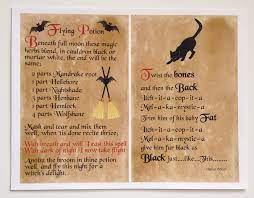 Flying Potion
Beneath full moon these magic
herbs blend, in cauldron black or
marwhite, the end will be the
same:
2 parts Mandrake root
1 parts Hellebore
3 parts Nightshade
1 parts Henbane
1 parts Hemlock
4 parts Wolfsbane
Mash and tear and mix them
well, when 'tis done recite thrice:
With breath and will I cast this spell
With dark of night I now take flight
Anoint the broom in thine potion
well, and fly this night for a
witch's delight.
Twist the bones
and then the Back
Itch-it-a-cop-it-a
Mel-a-ka-mystic-a
Trim him of his baby Fat
Itch-it-a-cop-it-a
Mel-a-ka-mystic-a
give him fur black as
Black just....like....This......